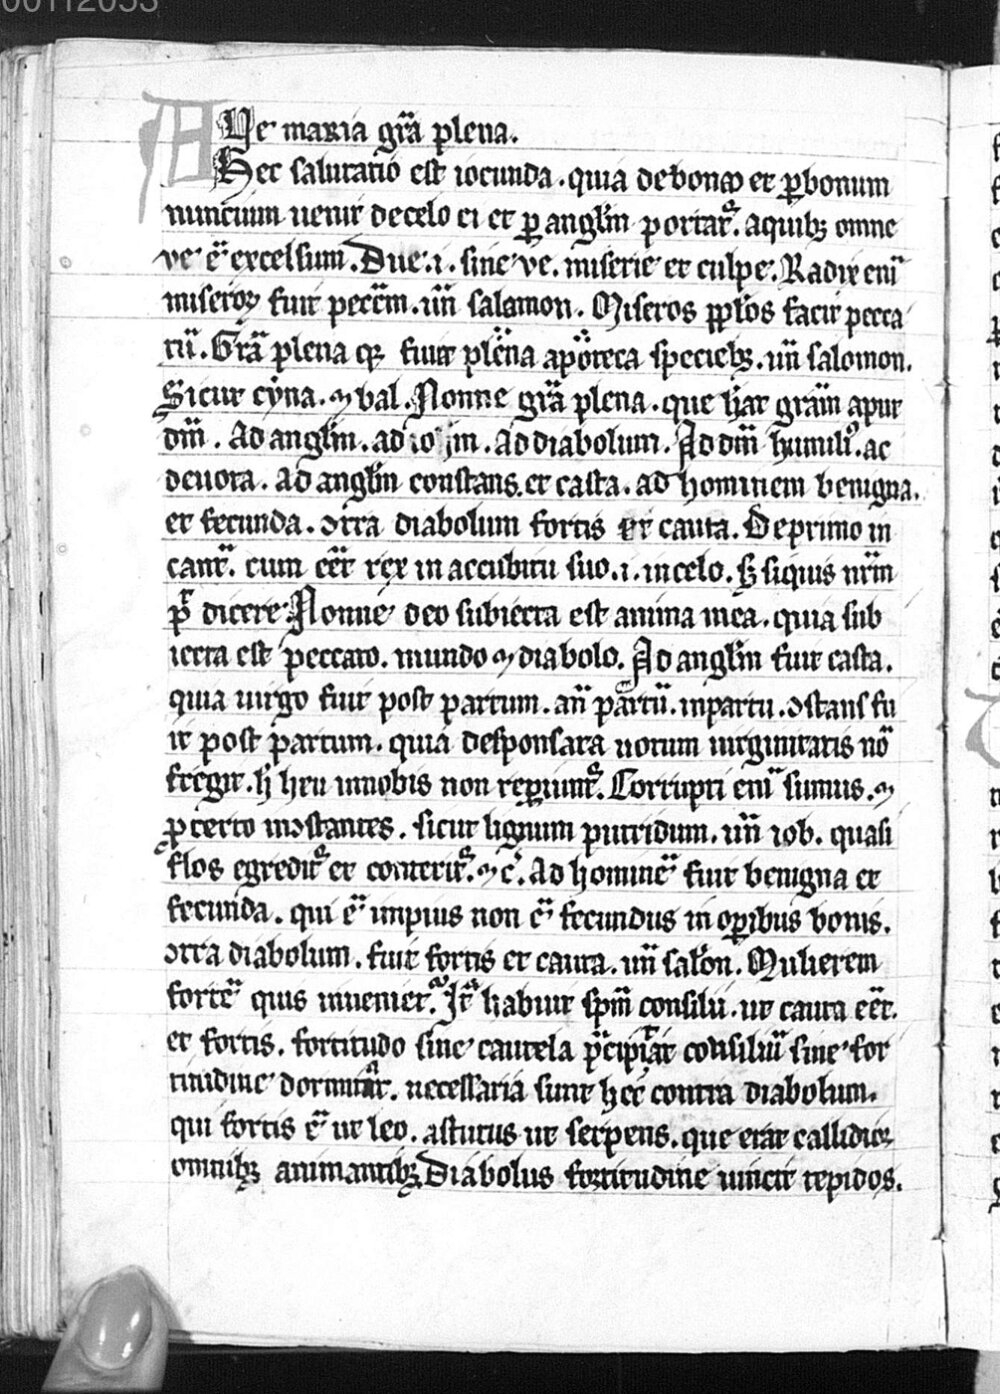 00112053
AVe maria gr̄a plena.
Hec salutatio est iocunda. quia de bono et ꝑ bonum
nuncium uenit de celo ei et ꝑ angl̄m portat᷑. a quibꝫ omne
ve ē excelsum. Due .i. sine ve. miserie et culpe. Radix eni᷑
miseroꝝ fuit pecc̄m. un̄ salamon. Miseros pp̄los facit pecca
tū. Gr̄a plena qꝫ fuit plena apoteca speciebꝫ. un̄ salomon.
Sicut cyna. ⁊ bal. Nonne gr̄a plena. que hat grām aput
dm̄. Ad angl̄m. ad diabolum. Ad dm̄ humil. ac
deuota. ad angl̄m constans et casta. ad hominem benigna.
et fecunda. ↄtra diabolum fortis et cauta. De primo in
cant᷑. cum eēt rex in accubitu suo .i. in celo. Sꝫ siquis nr̄m
p dicere Nonne deo subiecta est anima mea. quia sub
iecta est peccato. mundo ⁊ diabolo. Ad angl̄m fuit casta.
quia uirgo fuit post partum. an̄ partū. in partu. ↄstans fu
it post partum. quia desponsata uotum uirginitatis nō
fregit. h̄ heu in nobis non reperiunt᷑. Corrupti eni᷑ sumus. ⁊
ꝓ certo inↄstantes. sicut lignum putridum. un̄ iob. quasi
flos egredit᷑ et conterit᷑. ⁊ c̄. Ad hominē fuit benigna et
fecunda. qui ē impius non ē fecundus in oꝑibus bonis.
ↄtra diabolum. fuit fortis et cauta. un̄ salōn. Mulierem
fortē quis inueniet. It̄ habuit sp̄m consilii. ut cauta eēt.
et fortis. fortitudo sine cautela p̄cipitat consiliū sine for
titudine dormitat. necessaria sunt hec contra diabolum.
qui fortis ē ut leo. astutus ut serpens. que erat callidior
omnibꝫ animantibꝫ Diabolus fortitudine uincit tepidos.